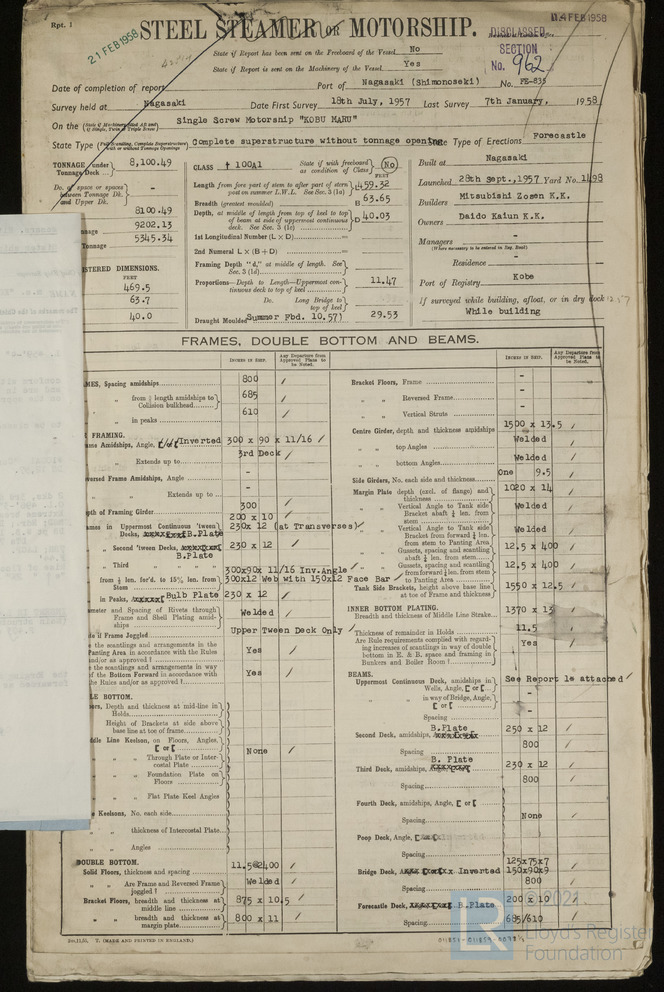 Rpt. 1
21 FEB 1958
STEEL STEAMER OR MOTORSHIP.
FEB 1958
DISCLASSED
SECTION
No. 962
State if Report has been sent on the Freeboard of the Vessel No
State if Report is sent on the Machinery of the Vessel Yes
Date of completion of report
Port of Nagasaki (Shimonoseki) No. FE-835
Survey held at Nagasaki Date First Survey 18th July, 1957 Last Survey 7th January, 1958
On the Single Screw Motorship "KOBU MARU"
State Type Complete superstructure without tonnage opening State Type of Erections Forecastle
TONNAGE under Tonnage Deck 8,100.49
Do. of space or spaces between Tonnage Dk. and Upper Dk. -
8100.49
9202.13
Tonnage 5345.34
ISTERED DIMENSIONS.
FEET
469.5
63.7
40.0
CLASS ✝ 100A1 State if with freeboard as condition of Class No
FEET
Length from fore part of stem to after part of stern post on summer L.W.L. See Sec. 3 (1a) L 459.32
Breadth (greatest moulded) B 63.65
Depth, at middle of length from top of keel to top of beam at side of uppermost continuous deck. See Sec. 3 (1c) D 40.03
1st Longitudinal Number (L × D)
2nd Numeral L × (B + D)
Framing Depth "d," at middle of length. See Sec. 3 (1d)
Proportions—Depth to Length—Uppermost continuous deck to top of keel 11.47
Do. Long Bridge to top of keel
Draught Moulded Summer Fbd. 10.57) 29.53
Built at Nagasaki
Launched 28th Sept., 1957 Yard No. 1498
Builders Mitsubishi Zosen K.K.
Owners Daido Kaiun K.K.
Managers -
(Where necessary to be entered in Reg. Book)
Residence -
Port of Registry Kobe
If surveyed while building, afloat, or in dry dock
While building
FRAMES, DOUBLE BOTTOM AND BEAMS.
INCHES IN SHIP.
Any Departure from Approved Plans to be Noted.
MES, Spacing amidships 800 /
" from ⅕ length amidships to Collision bulkhead 685 /
" in peaks 610 /
FRAMING.
ame Amidships, Angle, Inverted 300 x 90 x 11/16 /
" Extends up to 3rd Deck /
versed Frame Amidships, Angle -
" Extends up to -
pth of Framing Girder 300 /
200 x 10 /
ames in Uppermost Continuous 'tween Decks, B.Plate 230x 12 (at Transverses) /
" Second 'tween Decks, B.Plate 230 x 12 /
" Third " 300x90x 11/16 Inv.Angle /
" from ⅕ len. for'd. to 15% len. from Stem 300x12 Web with 150x12 Face Bar /
" in Peaks, Bulb Plate 230 x 12 /
ameter and Spacing of Rivets through Frame and Shell Plating amidships Welded /
te if Frame Joggled Upper Tween Deck Only /
e the scantlings and arrangements in the Panting Area in accordance with the Rules and/or as approved ? Yes /
e the scantlings and arrangements in way of the Bottom Forward in accordance with the Rules and/or as approved ? Yes /
LE BOTTOM.
ors, Depth and thickness at mid-line in Holds
Height of Brackets at side above base line at toe of frame
ddle Line Keelson, on Floors, Angles, [ or [
" " Through Plate or Intercostal Plate None /
" " Foundation Plate on Floors
" " Flat Plate Keel Angles
Keelsons, No. each side
" thickness of Intercostal Plate
" Angles
DOUBLE BOTTOM.
Solid Floors, thickness and spacing 11.5@2400 /
" " Are Frame and Reversed Frame joggled ? Welded /
Bracket Floors, breadth and thickness at middle line 875 x 10.5 /
" " breadth and thickness at margin plate 800 x 11 /
INCHES IN SHIP.
Any Departure from Approved Plans to be Noted.
Bracket Floors, Frame -
" " Reversed Frame -
" " Vertical Struts -
Centre Girder, depth and thickness amidships 1500 x 13.5 /
" " top Angles Welded
" " bottom Angles Welded /
Side Girders, No. each side and thickness One 9.5 /
Margin Plate depth (excl. of flange) and thickness 1020 x 14 /
" " Vertical Angle to Tank side Bracket abaft ¼ len. from stem Welded /
" " Vertical Angle to Tank side Bracket from forward ¼ len. from stem to Panting Area Welded /
" " Gussets, spacing and scantling abaft ¼ len. from stem 12.5 x 400 /
" " Gussets, spacing and scantling from forward ¼ len. from stem to Panting Area 12.5 x 400 /
Tank Side Brackets, height above base line at toe of Frame and thickness 1550 x 12.5 /
INNER BOTTOM PLATING.
Breadth and thickness of Middle Line Strake 1370 x 13 /
Thickness of remainder in Holds 11.5 /
Are Rule requirements complied with regarding increases of scantlings in way of double bottom in E. & B. space and framing in Bunkers and Boiler Room ? Yes /
BEAMS.
Uppermost Continuous Deck, amidships in Wells, Angle, [ or [ See Report 1c attached /
" " in way of Bridge, Angle, [ or [ -
Spacing -
Second Deck, amidships, B.Plate 250 x 12 /
Spacing 800 /
Third Deck, amidships, B. Plate 230 x 12 /
Spacing 800 /
Fourth Deck, amidships, Angle, [ or [
Spacing None /
Poop Deck, Angle,
Spacing
Bridge Deck, Inverted 125x75x7 150x90x9 /
Spacing 800 /
Forecastle Deck, B.Plate 200 x 10 /
Spacing 685/610 /
T. (MADE AND PRINTED IN ENGLAND.)
© 2021
Lloyd's Register
Foundation